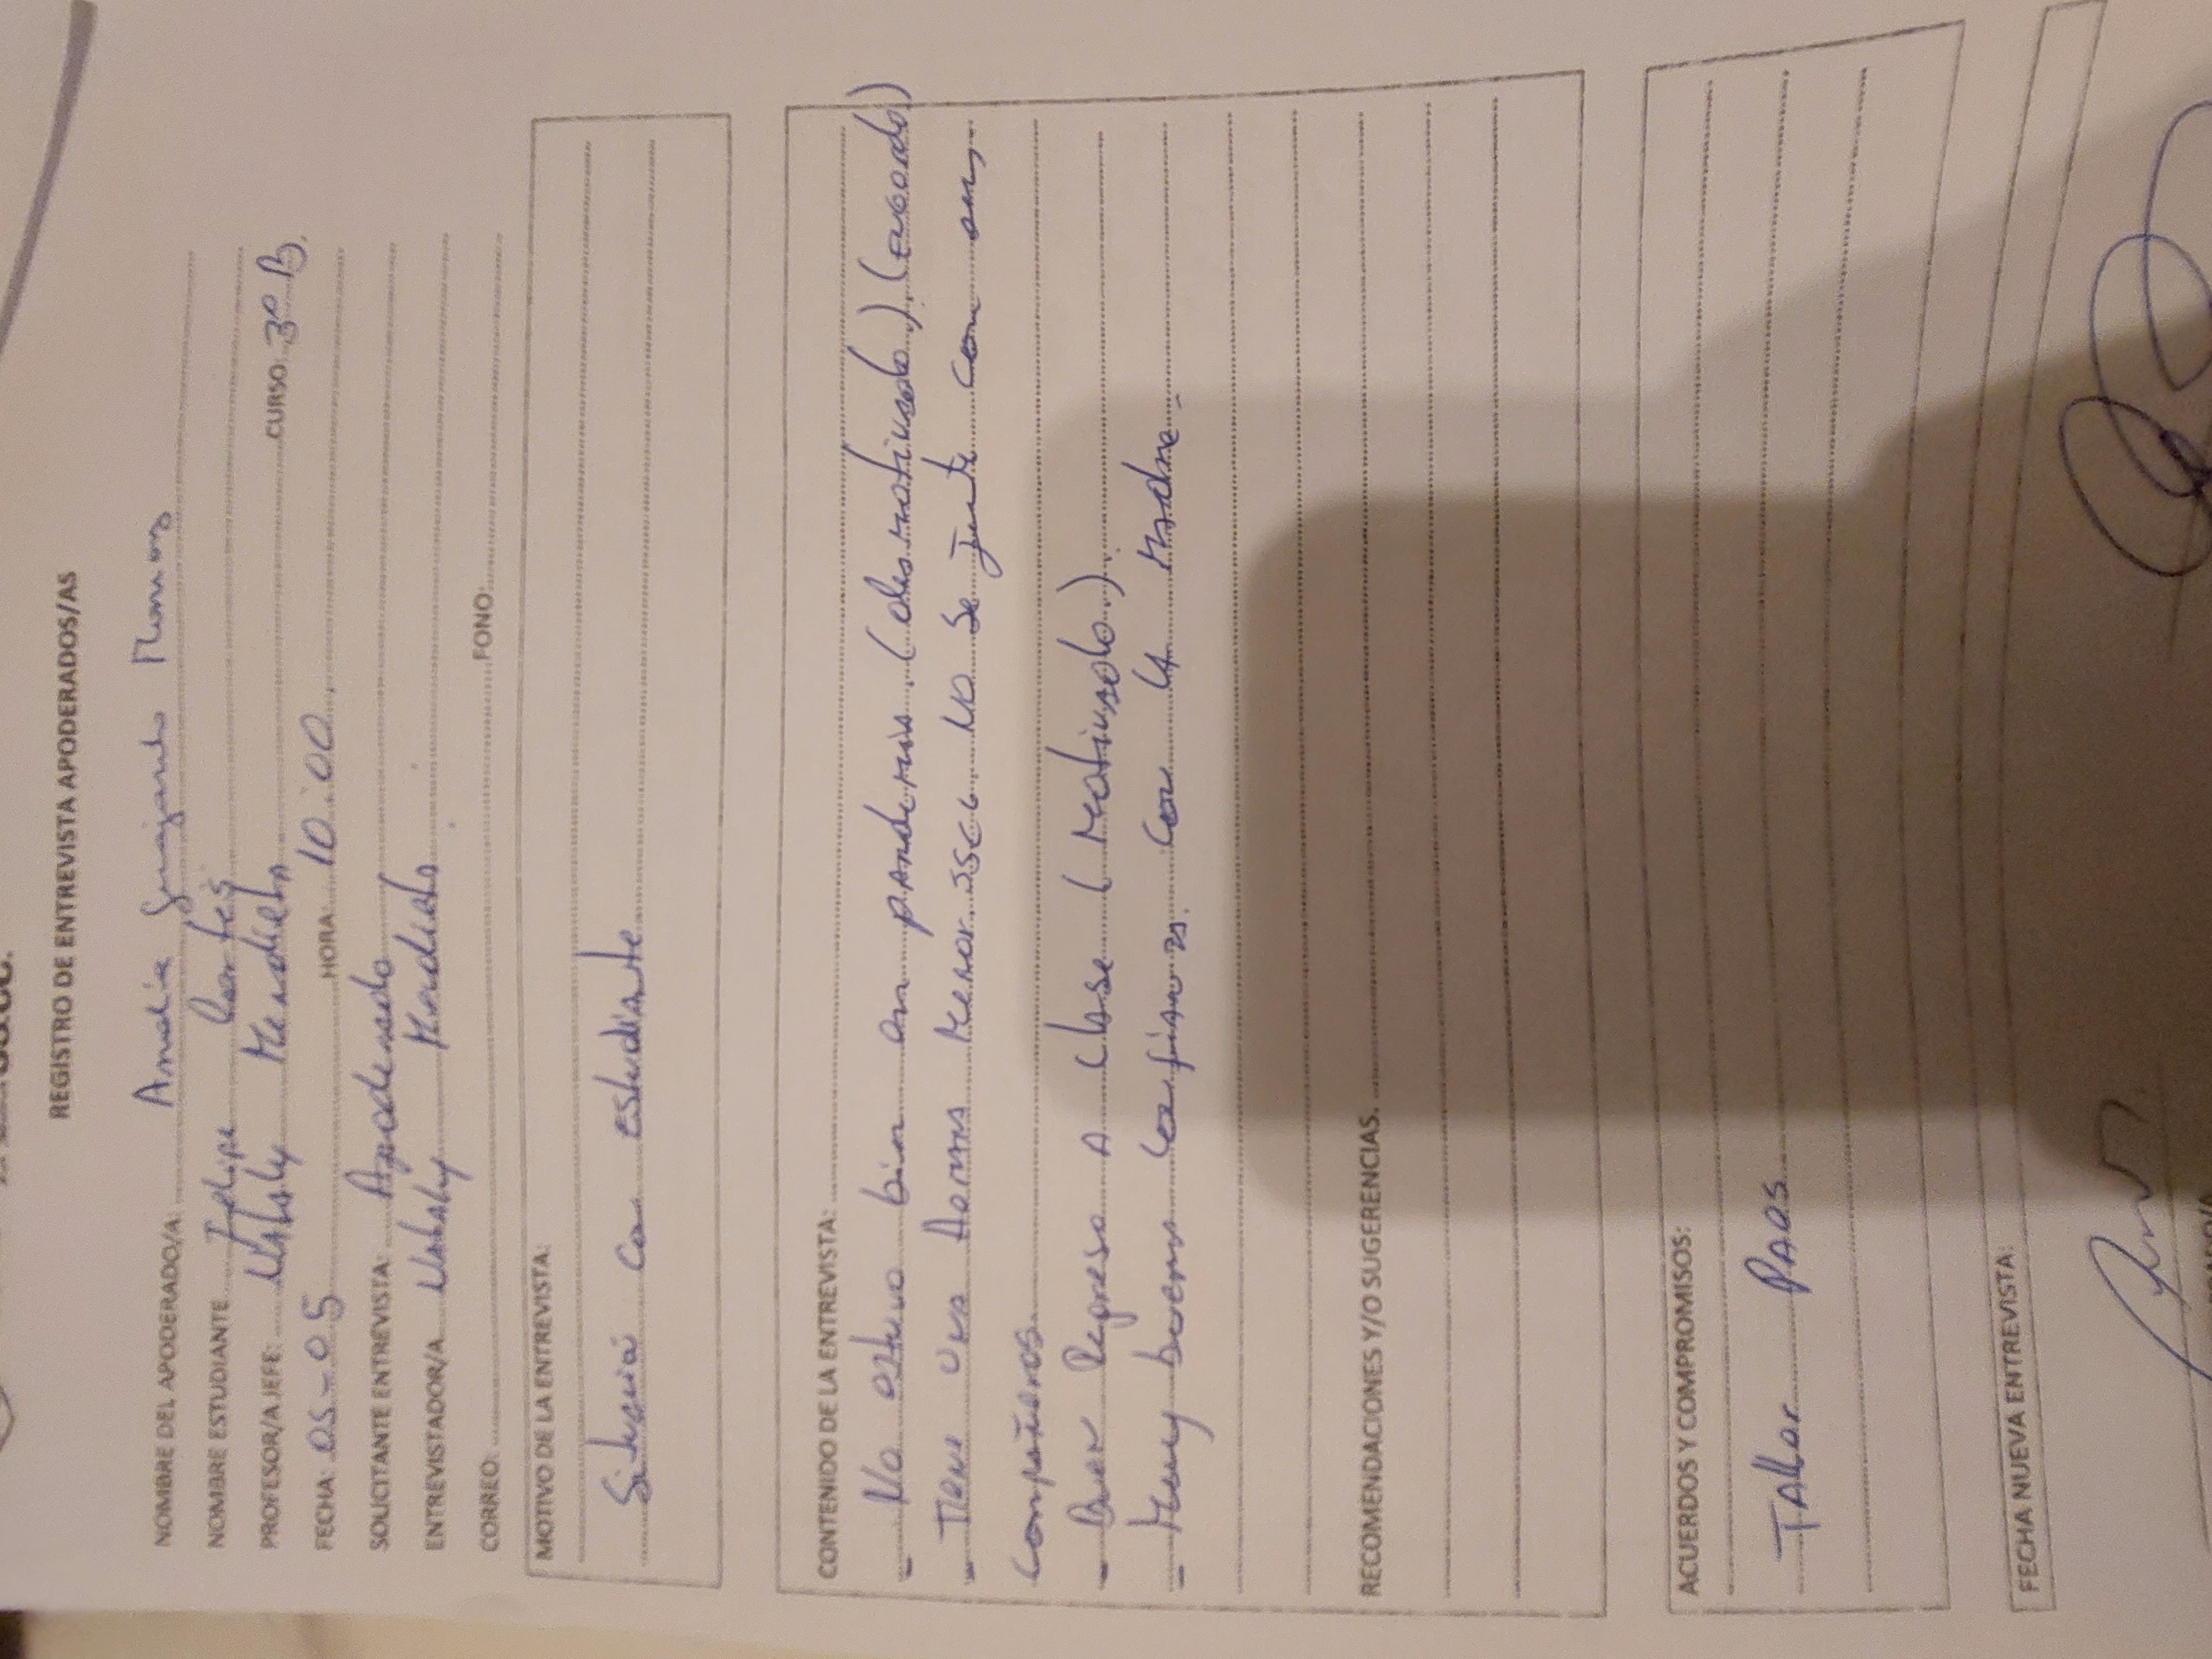 REGISTRO DE ENTREVISTA APODERADOS/AS
NOMBRE DEL APODERADO/A: Amalia
NOMBRE ESTUDIANTE Felipe Cortés
PROFESOR/A JEFE: Nataly Mendieta CURSO: 3º B.
FECHA 05-05 HORA 10:00.
SOLICITANTE ENTREVISTA: Apoderado
ENTREVISTADOR/A Nataly Mendieta
CORREO: FONO:
MOTIVO DE LA ENTREVISTA:
Situación con estudiante
CONTENIDO DE LA ENTREVISTA:
- No estuvo bien en pandemia. (desmotivado.)
- Tiene una Hermana Menor no se junta con sus
Compañeros.
- Buen Regreso a clase (Motivado.).
- Muy buena confianza. con la Madre.
RECOMENDACIONES Y/O SUGERENCIAS.
ACUERDOS Y COMPROMISOS:
Taller
FECHA NUEVA ENTREVISTA: